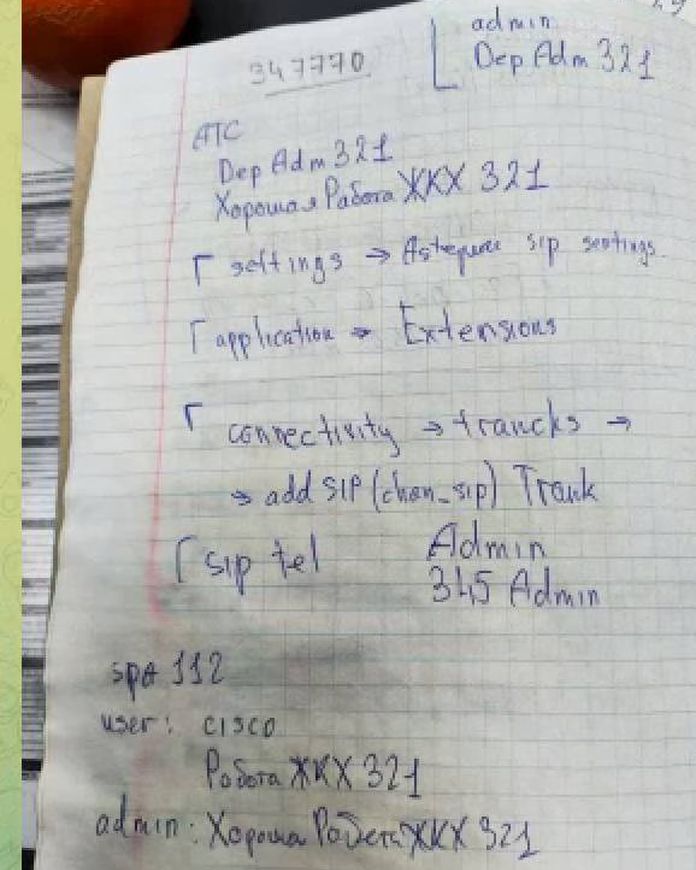 admin
Dep Adm 321
347770
АТС
Dep Adm 321
Хорошая Работа ЖКХ 321
settings → sip
application → Extensions
connectivity → trancks →
→ add SIP (chan_sip) Trank
sip tel Admin
345 Admin
spa 112
user: cisco
Работа ЖКХ 321
admin: Хороша Работа ЖКХ 321